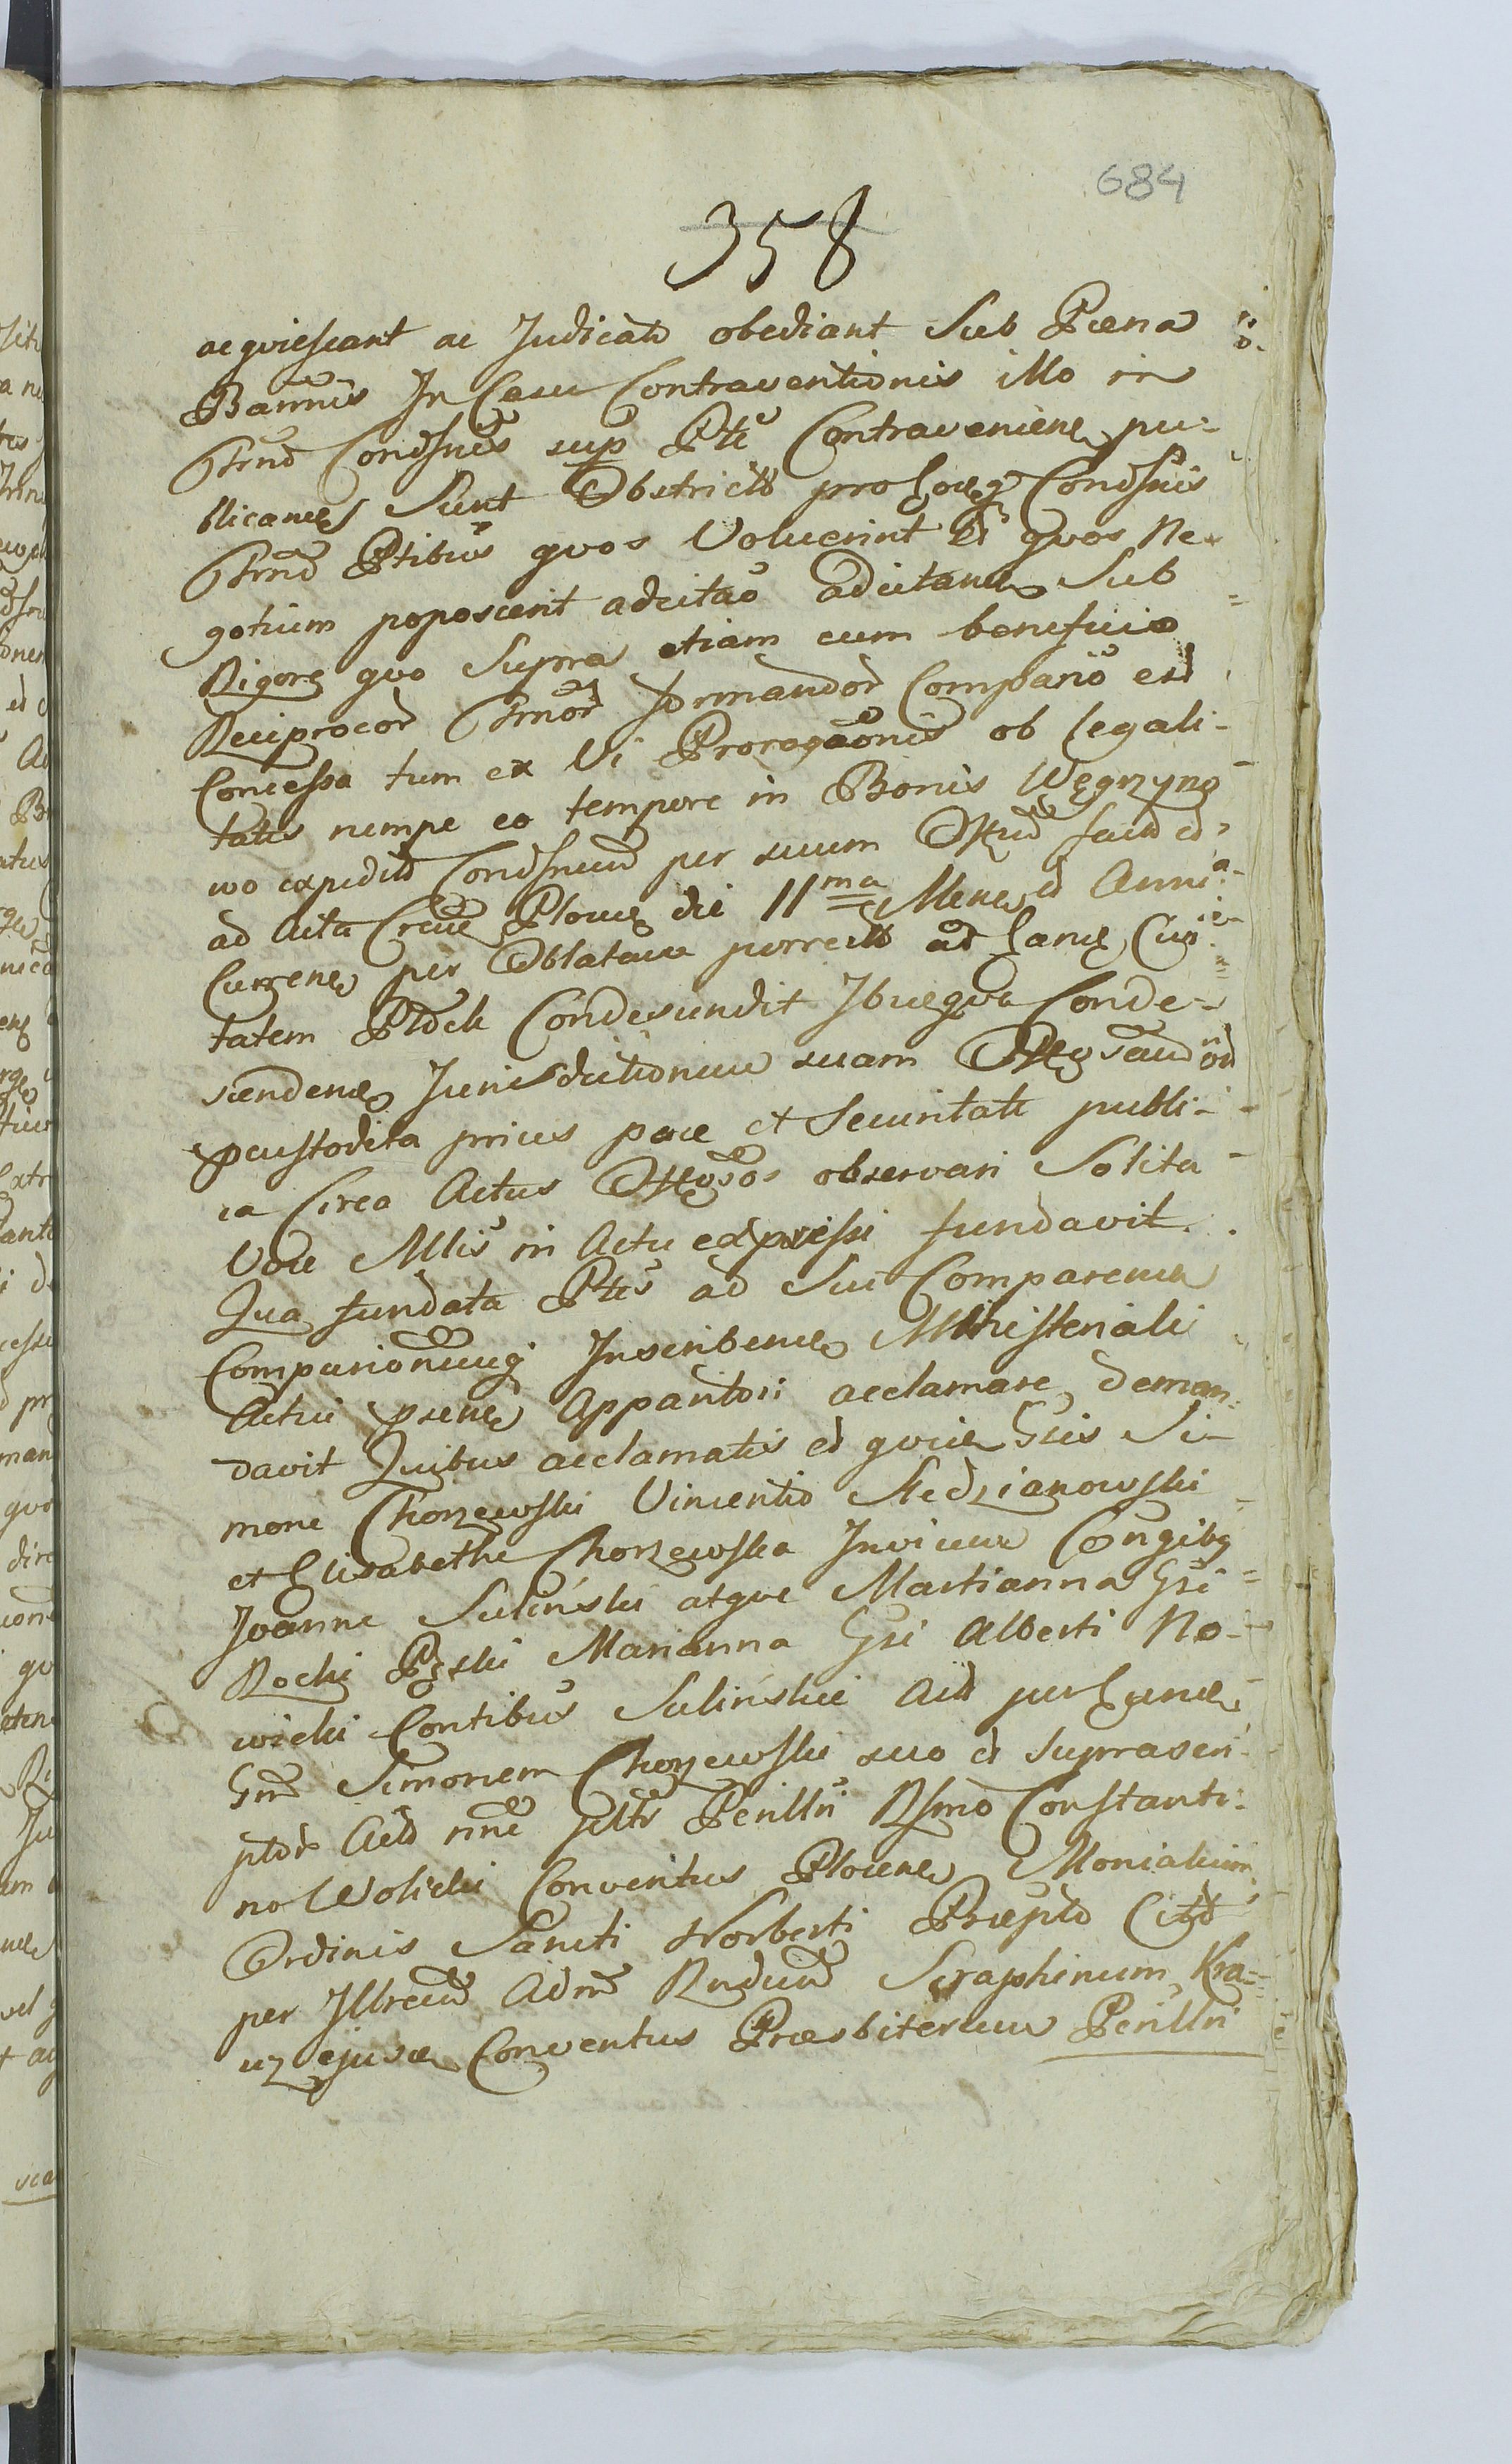 684
358
acquiescant ac Judicato obediant Sub Pœna
Bannis In Casu Contraventionis illo in
Ctrno Condsnēs sup Pte Contravenien pu-
blicanes Sunt Obstricto pro hocq Condsnis
Ctrno Ptibus quos Voluerint Et quos Ne-
gotium poposcerit adcitaō adcitanes Sub
Rigore quo Supra etiam cum beneficio
Reciprocor Ctrnor formandor Compariō est
Concessa tum ex Vi Prorogaōnis ob legali-
tatis nempe eo tempore in Bonis Węgrzyno
wo expedito Condsneum per suum facto et
ad Acta Crćue Plocen die 11ma Mens et Anni
Curren per Oblatam porrecto ad hanc Civi
tatem Plock Condescendit Ibique Conde-
scenden Jurisdictionem suam
custodita prius pace et Securitate publi-
ca Circa Actus observari Solita
Voce Mlis in Actu expressi fundavit.
Qua fundata Ptes ad Sui Comparen
Comparionemq Inscriben Ministeriali
Actui psen Apparitori acclamare deman
davit Quibus acclamatis et Gsis Si-
mone Chorzewski Vincentio Niedzianowski
et Elisabetha Chorzewska Invicem Congibq
Joanne Suliński atque Martianna Gsi
Rochi Marianna Gsi Alberti No-
wicki Contibus Sulińskie Act per hunc
Gm Simonem Chorzewski suo et suprascri
ptor Act nne Perilltri Rsmo Constanti-
no Wolicki Conventus Plocen Monialium
Ordinis Sancti Norberti Præpto Citt
per Illrem Adm Rndum Seraphinum Kra-
uz ejusd Conventus Præsbiterum Perilltri